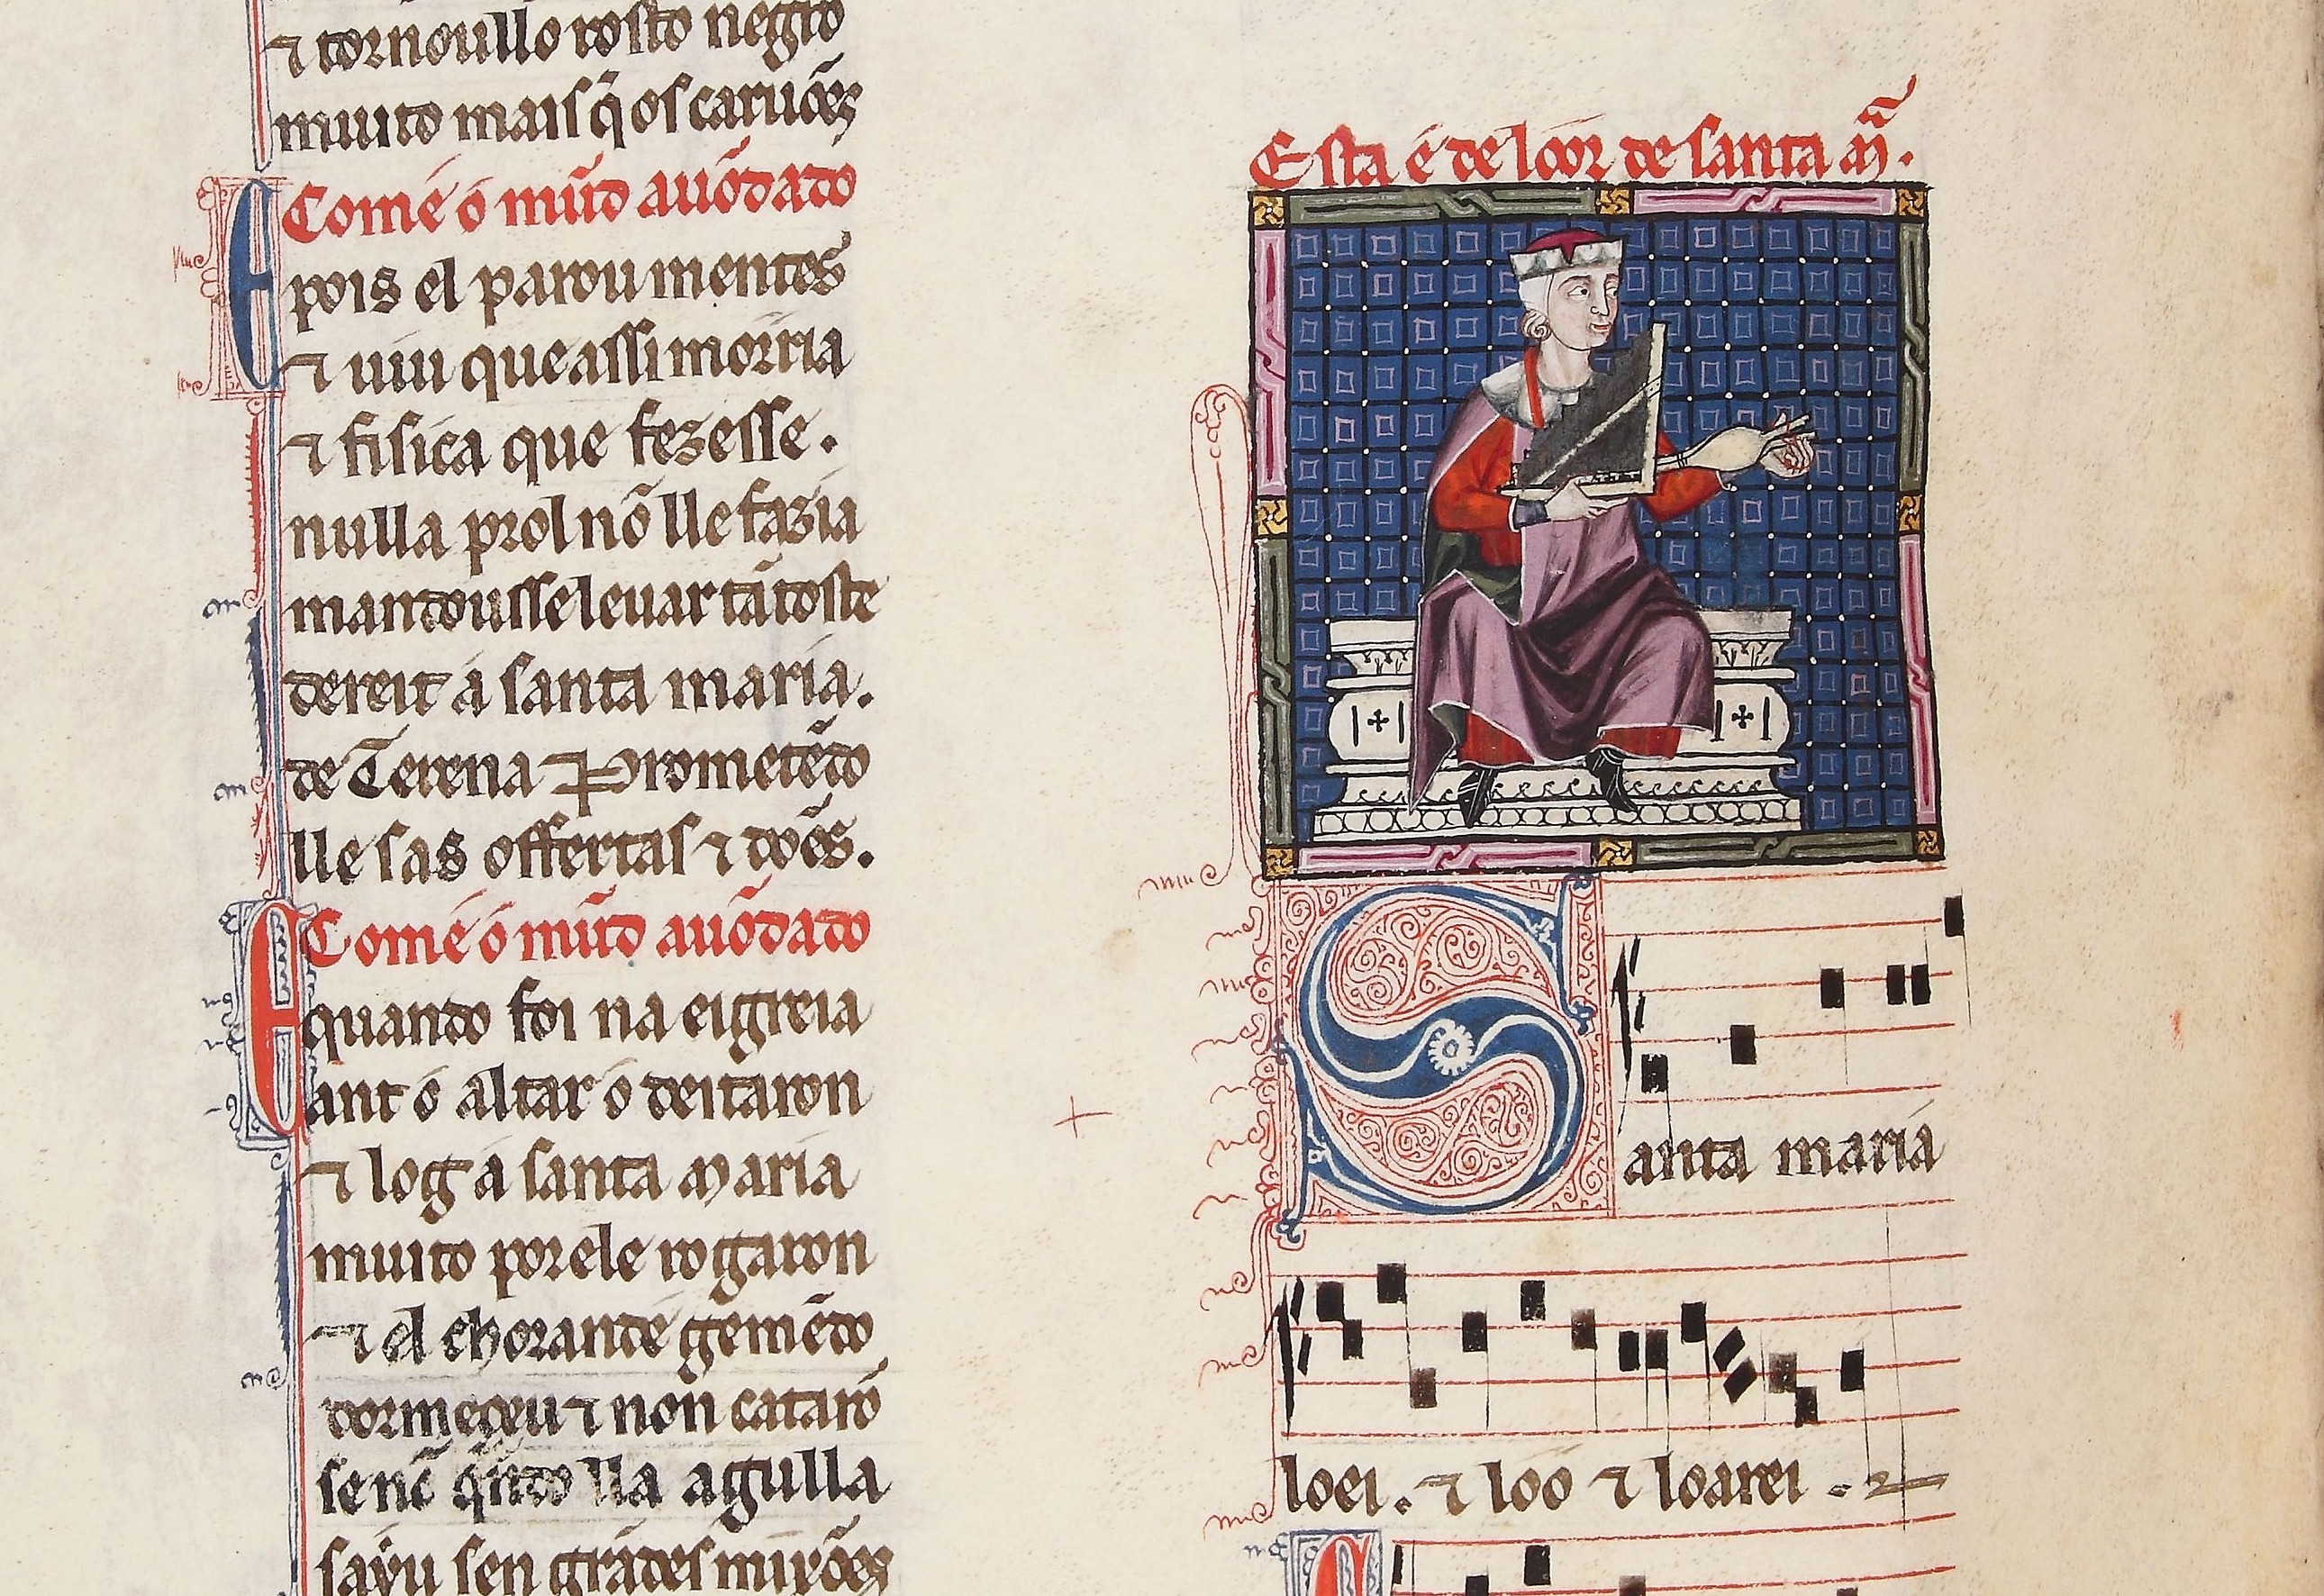 ⁊ tornoullo rosto negro
muito mais q̃ os caruões
Com é o mũd auõdado
E pois el parou mentes
⁊ uiu que assi morria
⁊ fisica que fezesse.
nulla prol nõ lle fazia
mandousse leuar tã toste
dereit a santa maria.
de Terena ⁊ Prometẽdo
lle sas offertas ⁊ dões.
Com é o mũd auõdado
E quando foi na eigreia
ant o altar o deitaron
⁊ log a santa maria
muito por ele rogaron
⁊ el chorand e gemẽdo
dormeçeu ⁊ non catarõ
senõ quãdo lla agulla
sayu sen grãdes mixões
Esta é de loor de santa mª.
Santa maria
loei. ⁊ loo ⁊ loarei.